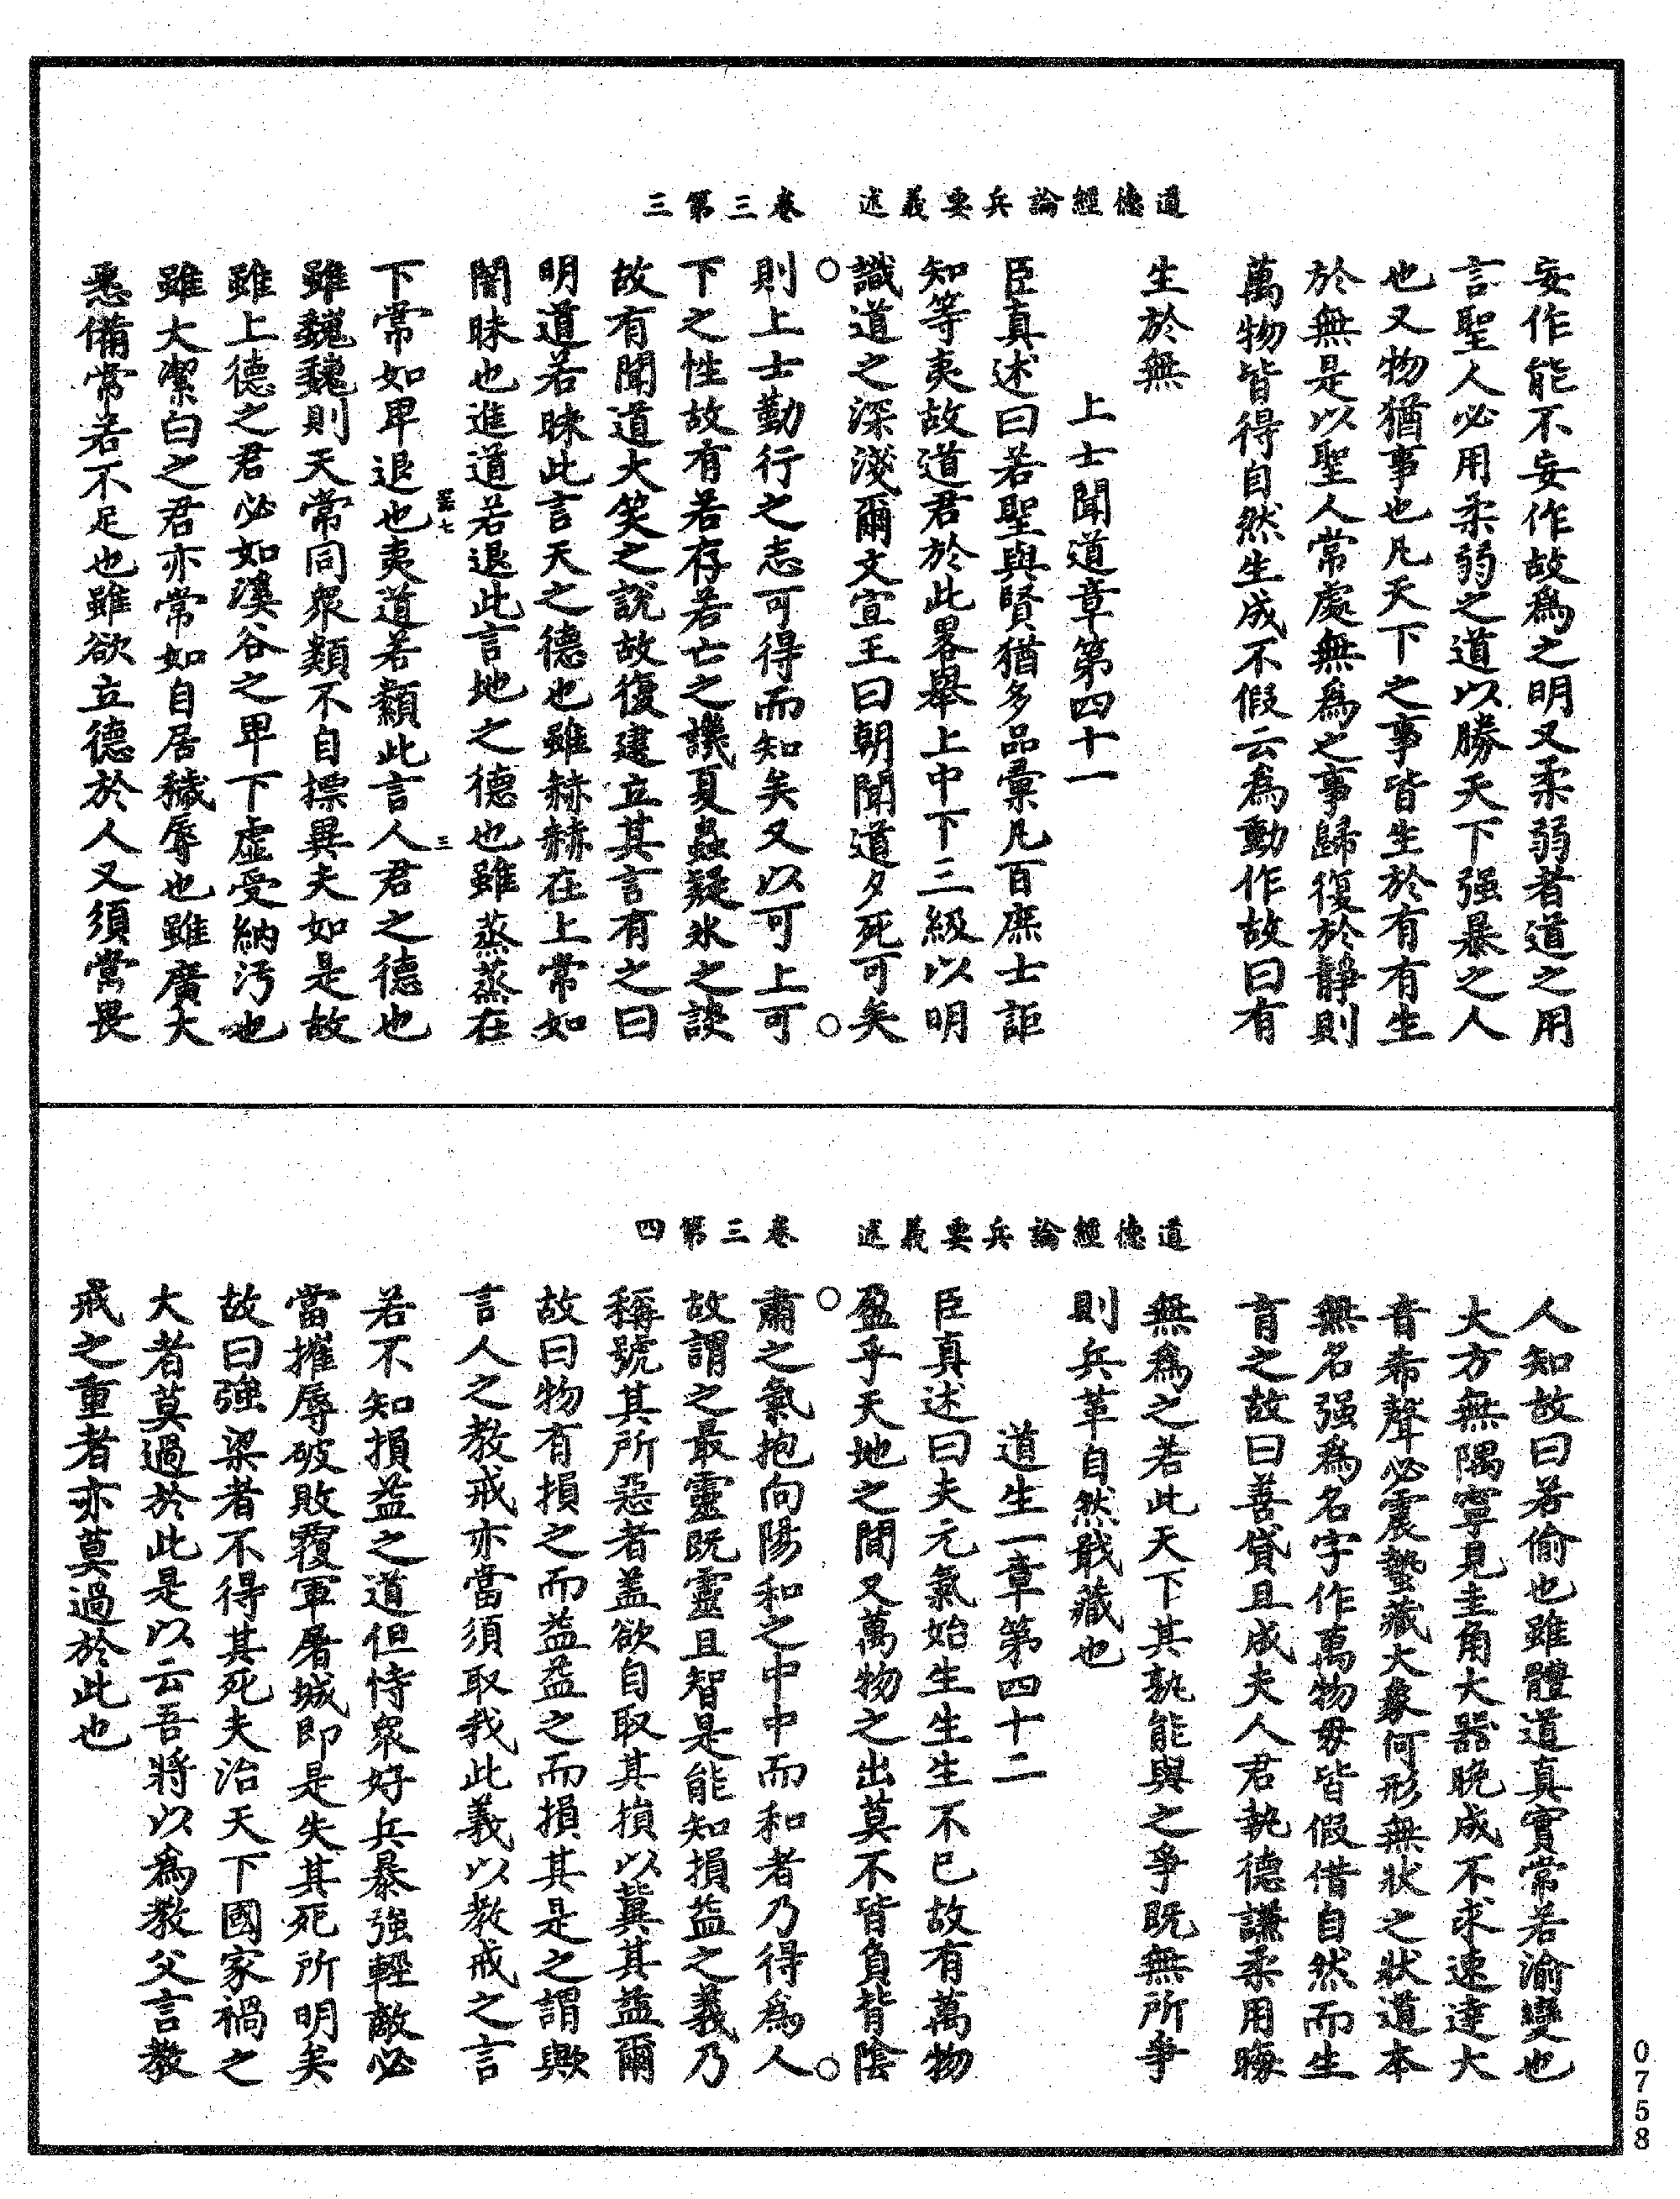 道德經論兵要義述　卷三第三
妄作能不妄作故爲之明又柔弱者道之用
言聖人必用柔弱之道以勝天下强暴之人
也又物猶事也凡天下之事皆生於有有生
於無是以聖人常處無爲之事歸復於靜則
萬物皆得自然生成不假云為動作故曰有
生於無
上士聞道章第四十一
臣真述曰若聖與賢猶多品彙凡百庶士詎
知等夷故道君於此畧舉上中下三級以明
識道之深淺爾文宣王曰朝聞道夕死可矣
則上士勤行之志可得而知矣又以可上可
下之性故有若存若亡之譏夏蟲疑氷之談
故有聞道大笑之說故復建立其言有之曰
明道若昧此言天之德也雖赫赫在上常如
闇昧也進道若退此言地之德也雖蒸蒸在
下常如卑退也夷道若纇此言人君之德也
雖巍巍則天常同衆類不自摽異夫如是故
雖上德之君必如溪谷之卑下虛受納汚也
雖大潔白之君亦常如自居穢辱也雖廣大
悉備常若不足也雖欲立德於人又須常畏
道德經論兵要義述　卷三第四
人知故曰若偷也雖體道真實常若渝變也
大方無隅寧見圭角大器晚成不求速達大
音希聲必震蟄藏大象何形無狀之狀道本
無名强爲名字作萬物毋皆假借自然而生
育之故曰善貸且成夫人君執德謙柔用晦
無爲之若此天下其孰能與之爭既無所爭
則兵革自然戢藏也
道生一章第四十二
臣真述曰夫元氣始生生生不已故有萬物
盈乎天地之間又萬物之出莫不皆負背陰
肅之氣抱向陽和之中中而和者乃得爲人
故謂之最靈既靈且智是能知損益之義乃
稱號其所惡者盖欲自取其損以冀其益爾
故曰物有損之而益益之而損其是之謂歟
言人之教戒亦當須取我此義以教戒之言
若不知損益之道但恃衆好兵暴強輕敵必
當摧辱破敗覆軍屠城即是失其死所明矣
故曰強梁者不得其死夫治天下國家禍之
大者莫過於此是以云吾將以爲教父言教
戒之重者亦莫過於此也
0758